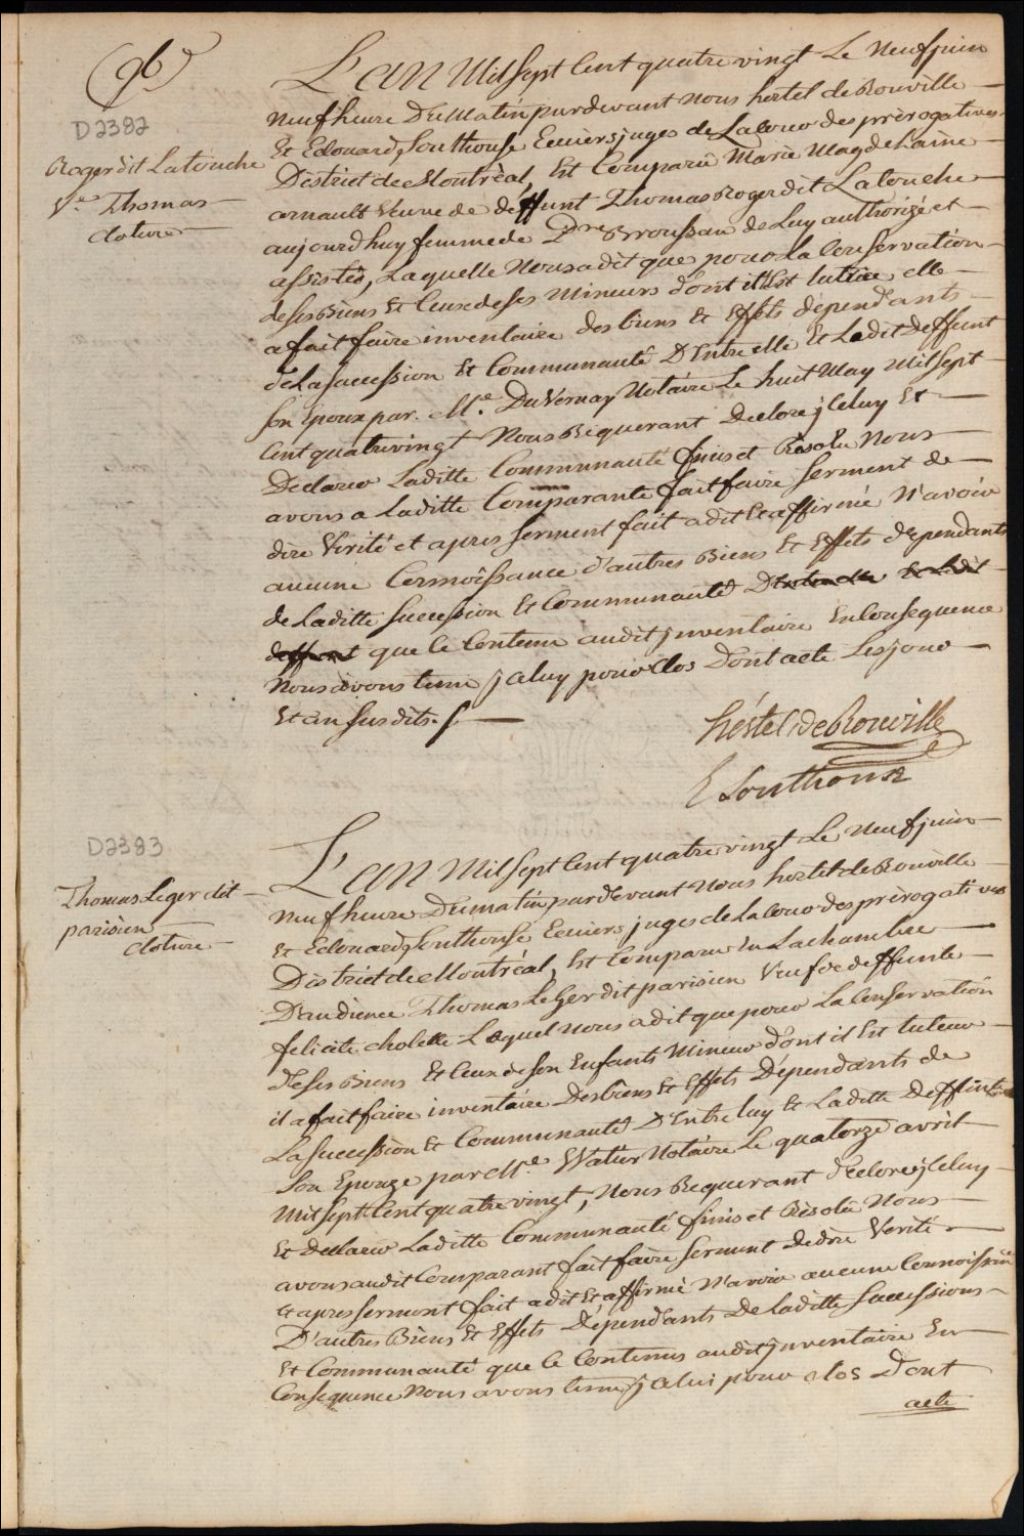 (96)
D2382
Roger dit Latouche
Ve. Thomas
cloture
L'an Mil sept Cent quatre vingt Le Neuf juin
neuf heure Du Matin pardevant nous hertel de Rouville
Et Edouard Southouse Ecuiers juges de La Cour des prérogatives
District de Montréal, Est Comparüe Marie Magdelaine
arnault Veuve de deffunt Thomas Roger dit Latouche
aujourdhuy femme de Brroussau de Luy authorizé et
assistée, Laquelle Nous a dit que pour La Conservation
de ses Biens Et Ceux de ses Mineurs dont il Est tutrice elle
a fait faire inventaire des biens Et Effets dépendants
de La Succession Et Communauté D'Entre elle Et Le dit deffunt
son Epoux par Me. DuVernay Notaire Le huit May Mil Sept
Cent quatrevingt Nous Requerant De clore jCeluy Et
Declarer Laditte Communauté finis et Résolue Nous
avons a Laditte Comparante fait faire Serment de
dire Verité et apres Serment fait a dit Et affirmé N'avoir
aucune Connoissance d'autres Biens Et Effets dependants
de Laditte Sucession Et Communauté D'Entre elle Et Ledit
deffunt que le Contenu audit jnventaire En Consequence
Nous avons tenu jCeluy pour Clos Dont acte Les jour
Et an Susdits./.
hértel de Rouville
E Southouse
D2383
Thomas Leger dit
parisien
cloture
L'an Mil sept Cent quatre vingt Le Neuf juin
neuf heure Du matin pardevant nous hertel de Rouville
Et Edouard Southouse Ecuiers juges de La Cour des prérogatives
District de Montréal, Est Comparu En La chambre
D'audience Thomas Leger dit parisien Veuf de deffunte
felicité cholette Lequel nous a dit que pour La Conservation
de ses Biens Et Ceux de son Enfants Mineur dont il Est tuteur
il a fait faire inventaire Des biens Et Effets Dépendants de
La Succession Et Communauté D'Entre luy Et La ditte Deffunte
Son Epouze par Me Watier Notaire Le quatorze avril
Mil Sept Cent quatre vingt, Nous Requerant de clore jCeluy
Et declarer Laditte Communauté finis et Résolue Nous
avons audit Comparant fait faire Serment de dire Verité
Et apres Serment fait a dit Et affirmé N'avoir aucune Connoissance
D'autres Biens Et Effets Dépendants De Laditte Successions
Et Communauté que le Contenus audit jnventaire En
Consequence Nous avons tenu jCelui pour clos Dont
acte